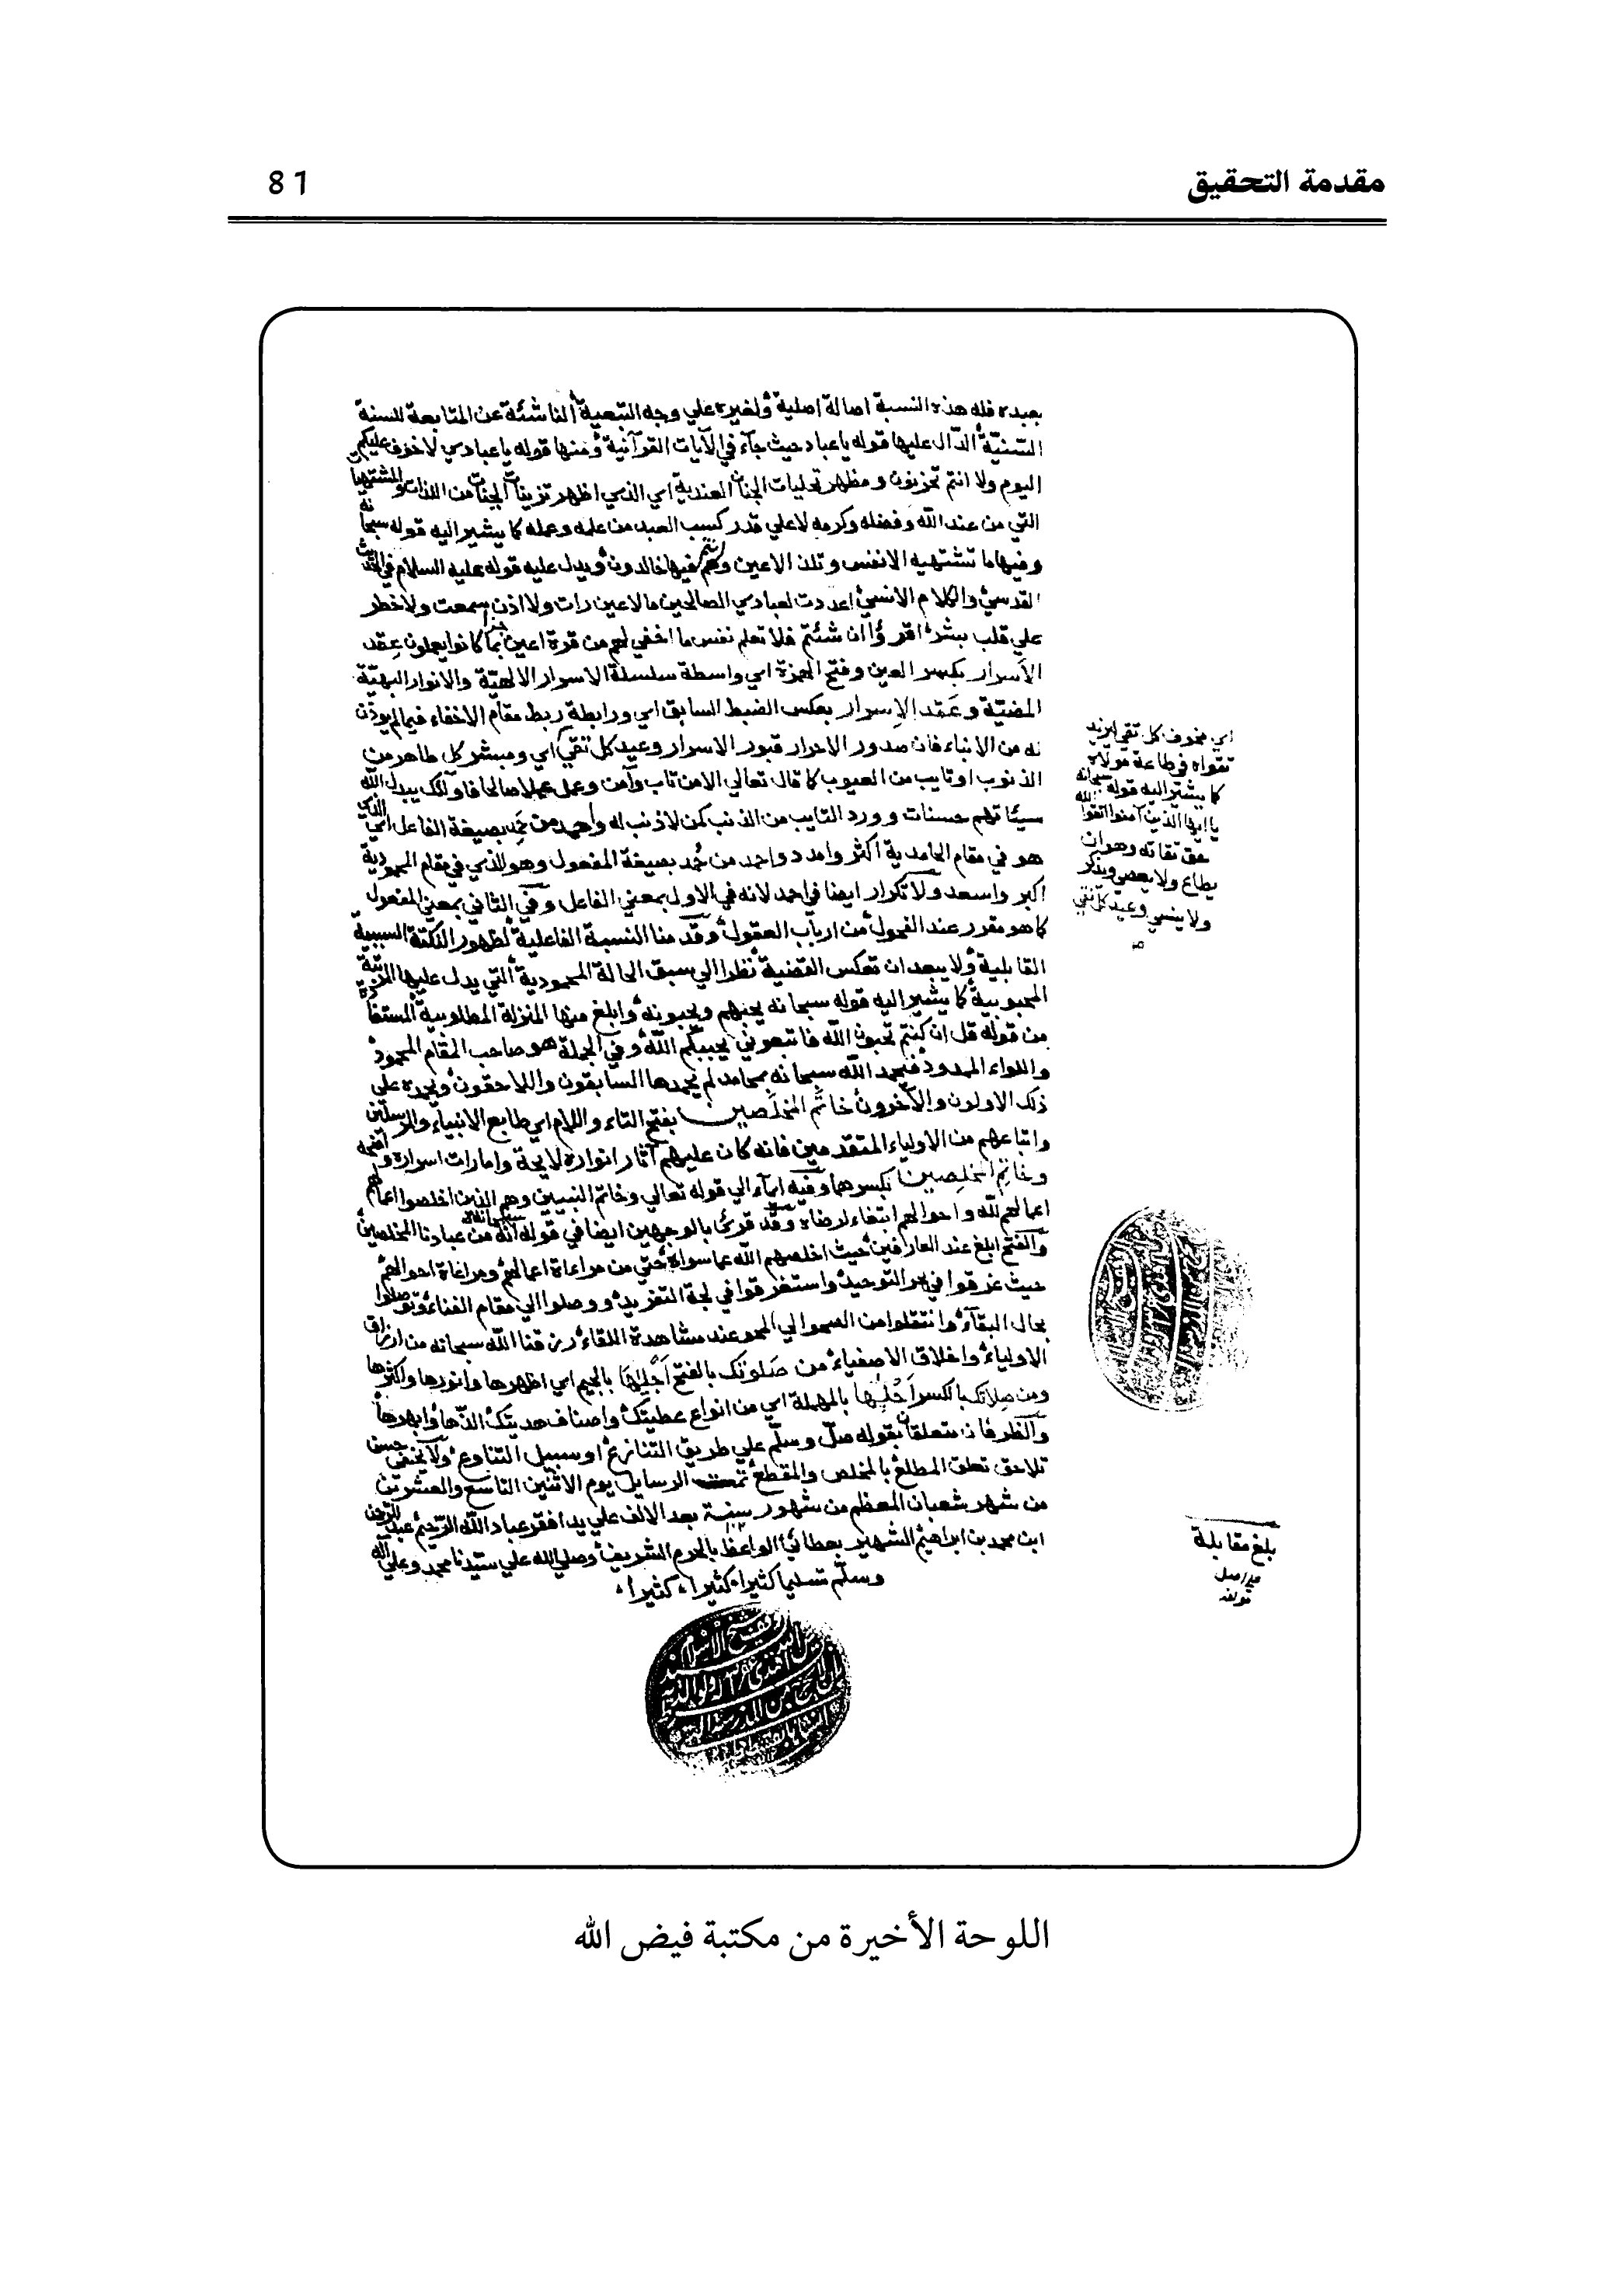 مقدمة التحقيق
81
بعبده فله هذه النسبة اصالة اصلية ولغيره علي وجه التبعية الناشئة عن المتابعة للسنة
السنيّة الدّال عليها قوله ياعباد حيث جآء في الآيات القرآنية ومنها قوله ياعبادي لاخوف عليكم
اليوم ولا انتم تحزنون ومظهر تجليات الجنات العندية اي الذي اظهر تزينات الجنات من اللذات والمشتهيات
التي من عند الله وفضله وكرمه لاعلي قدر كسب العبد من علمه وعمله كما يشير اليه قوله سبحانه
وفيها ما تشتهيه الانفس وتلذ الاعين وانتم فيها خالدون ويدل عليه قوله عليه السلام في الحديث
القدسي والكلام الانسي اعددت لعبادي الصالحين مالاعين رات ولا اذن سمعت ولاخطر
علي قلب بشر اقرؤا ان شئتم فلا تعلم نفس ما اخفي لهم من قرة اعين جزاء بما كانوا يعملون عِقد
الأسرار بكسر العين وفتح الهمزة اي واسطة سلسلة الاسرار الالهيّة والانوار البهيّة
المضيّة وعَقد الإسرار بعكس الضبط السابق اي ورابطة ربط مقام الاخفاء فيما لم يوذن
له من الانباء فان صدور الاحرار قبور الاسرار وعيد كل تقي اي ومبشر كل طاهر من
الذنوب اوتايب من العيوب كما قال تعالي الامن تاب وآمن وعمل عملا صالحا فاولئك يبدل الله
سيئاتهم حسنات وورد التايب من الذنب كمن لاذنب له واحمد من حَمِد بصيغة الفاعل اي الذي
هو في مقام الحامدية اكثر وامدد واحمد من حُمد بصيغة المفعول وهو الذي في مقام المحمودية
اكبر واسعد ولا تكرار ايضا في احمد لانه في الاول بمعني الفاعل وفي الثاني بمعني المفعول
كما هو مقرر عند الفحول من ارباب العقول وقدمنا النسبة الفاعلية لظهور النكتة السببية
القابلية ولا يبعد ان تعكس القضية نظرا الي سبق الحالة المحمودية التي يدل عليها المرتبة
المحبوبية كما يشير اليه قوله سبحانه يحبهم ويحبونه وابلغ منها المنزلة المطلوبية المستفادة
من قوله قل ان كنتم تحبون الله فاتبعوني يحببكم الله وفي الجملة هو صاحب المقام المحمود
واللواء الممدود فيحمد الله سبحانه بمحامد لم يحمدها السابقون واللاحقون ويحمده علي
ذلك الاولون والآخرون خاتَم المخلَصين بفتح التاء واللام اي طابع الانبياء والمرسلين
واتباعهم من الاولياء المتقدمين فانه كان عليهم آثار انواره لايحة وامارات اسراره واضحة
وخاتِم المخلِصين بكسرهما وفيه ايمآء الي قوله تعالي وخاتم النبيين وهم الذين اخلصوا اعمالهم
اعمالهم لله واحوالهم ابتغاء لرضاه وقد قرئ بالوجهين ايضا في قوله سبحانه انه من عبادنا المخلصين
والفتح ابلغ عند العارفين حيث اخلصهم الله عما سواه حتي من مراعاة اعمالهم ومراعاة احوالهم
حيث غرقوا في بحر التوحيد واستغرقوا في لجة التفريد ووصلوا الي مقام الفناء وتوصلوا
بحال البقآء وانتقلوا من الصحو الي المحو عند مشاهدة اللقاء رزقنا الله سبحانه من ارزاق
الاولياء واخلاق الاصفياء من صَلوتك بالفتح اَجْلَيها بالجيم اي اظهرها وانورها واكثرها
ومن صِلاتك بالكسر اَحْلَيها بالمهملة اي من انواع عطيتك واصناف هديتك الذّها وابهرها
والظرفان متعلقان بقوله صلّ وسلّم علي طريق التنازع او سبيل التناوع ولا يخفي حسن
تلاحق تعلق المطلع بالمخلص والمقطع تمت الرسايل يوم الاثنين التاسع والعشرين
من شهر شعبان المعظم من شهور سنة بعد الالف علي يد افقر عباد الله الرحيم عبد الرحمن
ابن محمد بن ابراهيم الشهير بعطائي الواعظ بالحرم الشريف وصلي الله علي سيدنا محمد وعلي آله
وسلّم تسليما كثيرا كثيرا كثيرا
اي مخوف كل تقي ليزيد
تقواه في طاعة مولاه
كما يشير اليه قوله سبحانه
يا ايها الذين آمنوا اتقوا الله
حق تقاته وهو ان
يطاع ولا يعصي ويذكر
ولا ينسي وعيد كل تقي
بلغ مقابلة
علي اصل
مولفه
اللوحة الأخيرة من مكتبة فيض الله